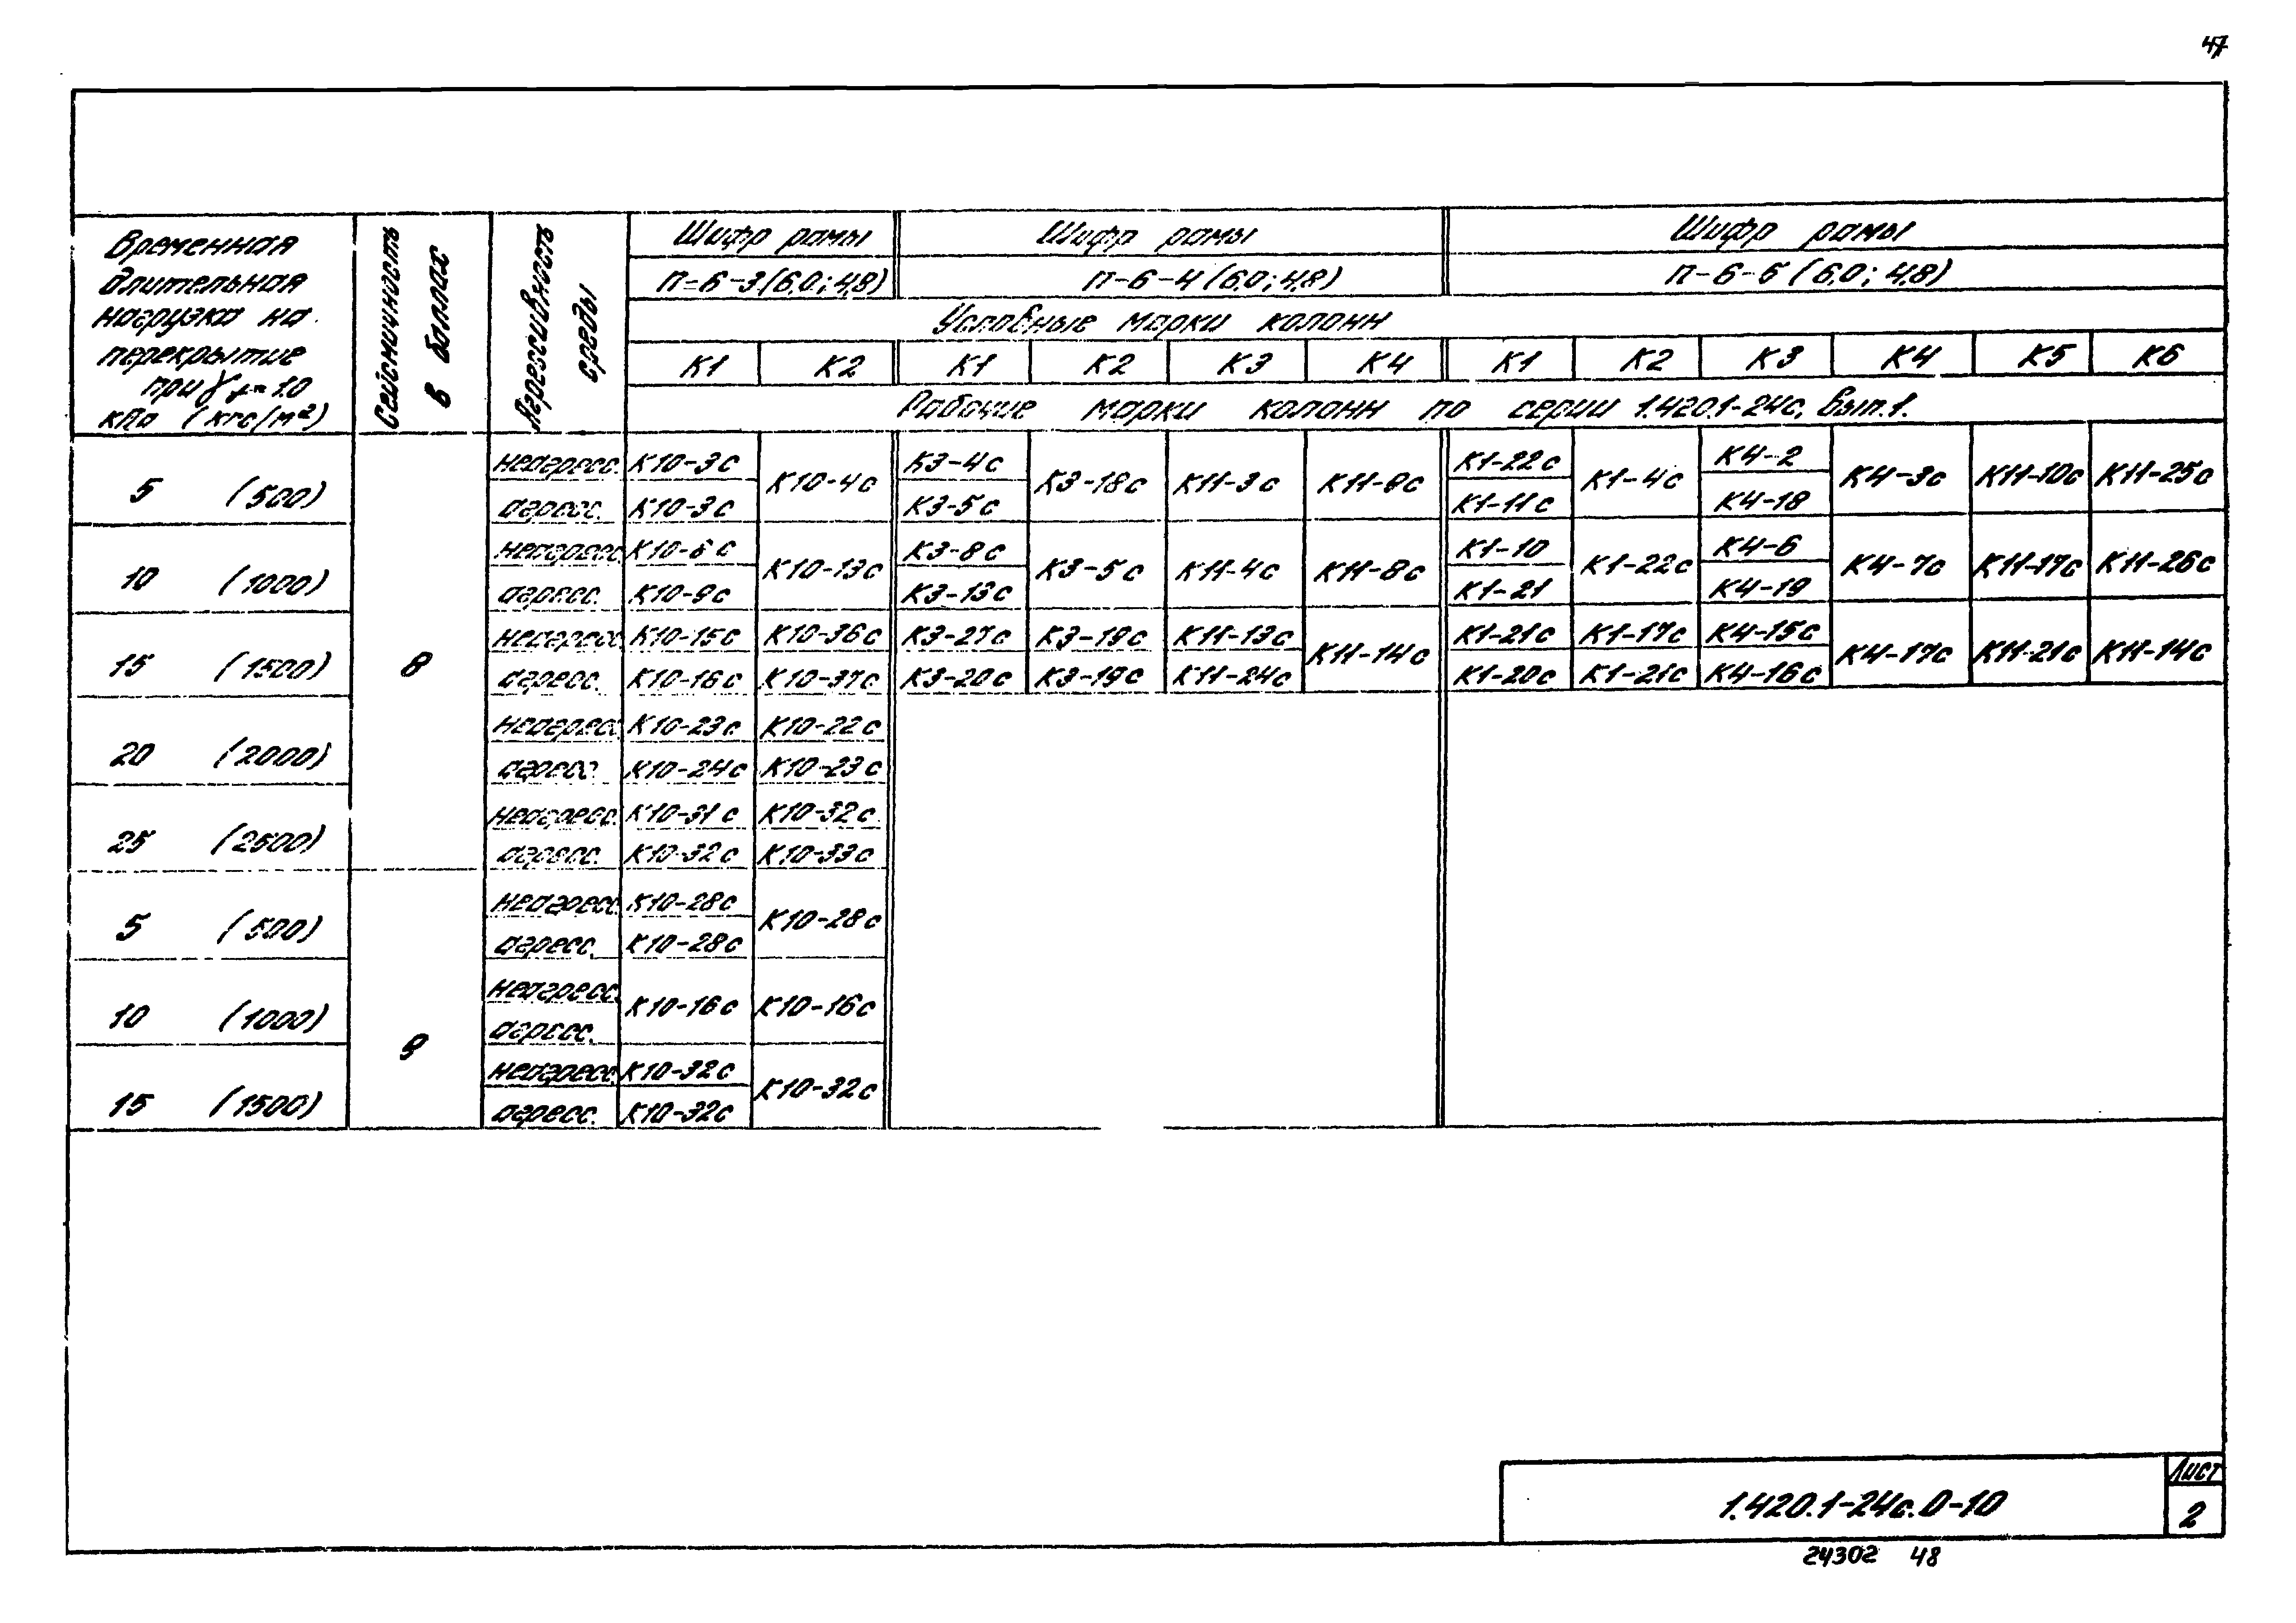 47
Временная длительная нагрузка на перекрытие при γf=1.0 кПа (кгс/м²)
Сейсмичность в баллах
Агрессивность среды
Шифр рамы Шифр рамы Шифр рамы
П-6-3(6,0; 4,8) П-6-4(6,0; 4,8) П-6-5(6,0; 4,8)
Условные марки колонн
К1 К2 К1 К2 К3 К4 К1 К2 К3 К4 К5 К6
Рабочие марки колонн по серии 1.420.1-24с, вып.1.
5 (500) неагресс. К10-3с К10-4с К3-4с К3-18с К11-3с К11-9с К1-22с К1-4с К4-2 К4-3с К11-10с К11-25с
агресс. К10-3с К3-5с К1-11с К4-18
10 (1000) неагресс. К10-6с К10-13с К3-8с К3-5с К11-4с К11-8с К1-10 К1-22с К4-6 К4-7с К11-17с К11-26с
агресс. К10-9с К3-13с К1-21 К4-19
15 (1500) 8 неагресс. К10-15с К10-36с К3-27с К3-19с К11-13с К11-14с К1-21с К1-17с К4-15с К4-17с К11-21с К11-14с
агресс. К10-16с К10-37с К3-20с К3-19с К11-24с К1-20с К1-21с К4-16с
20 (2000) неагресс. К10-23с К10-22с
агресс. К10-24с К10-23с
25 (2500) неагресс. К10-31с К10-32с
агресс. К10-32с К10-33с
5 (500) неагресс. К10-28с К10-28с
агресс. К10-28с
10 (1000) неагресс. К10-16с К10-16с
9 агресс.
15 (1500) неагресс. К10-32с К10-32с
агресс. К10-32с
1.420.1-24с.0-10
Лист
2
24302 48